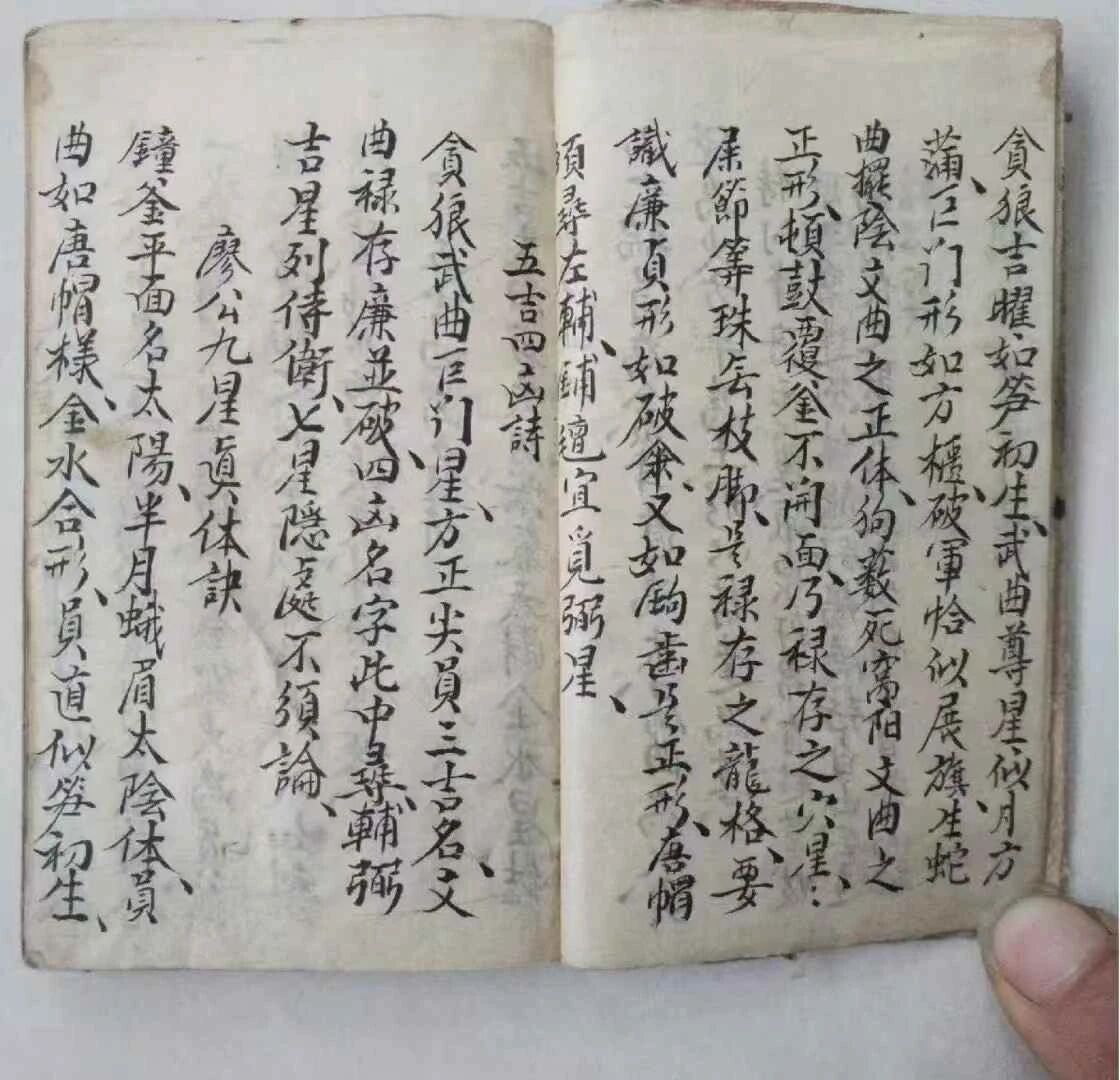 貪狼吉曜如笋初生、武曲尊星、似月方
蒲、巨门形如方櫃、破軍恰似展旗生蛇
曲擺陰文曲之正体、狗薮死窩阳文曲之
正形、頓鼓覆釜不開面、乃禄存之穴星、
屎節等珠無枝脚、是禄存之龍格、要
識廉貞形如破傘、又如鋸齒是正形、唐帽
頭尋左輔、輔邉宜覓弼星、
五吉四凶詩
貪狼武曲巨门星、方正尖員三吉名、文
曲禄存廉並破、四凶名字此中尋、輔弼
吉星列侍衛、七星隱处不須論、
廖公九星眞体訣
鐘釜平面名太陽、半月蛾眉太陰体、員
曲如唐帽樣、金水合形、員直似笋初生、